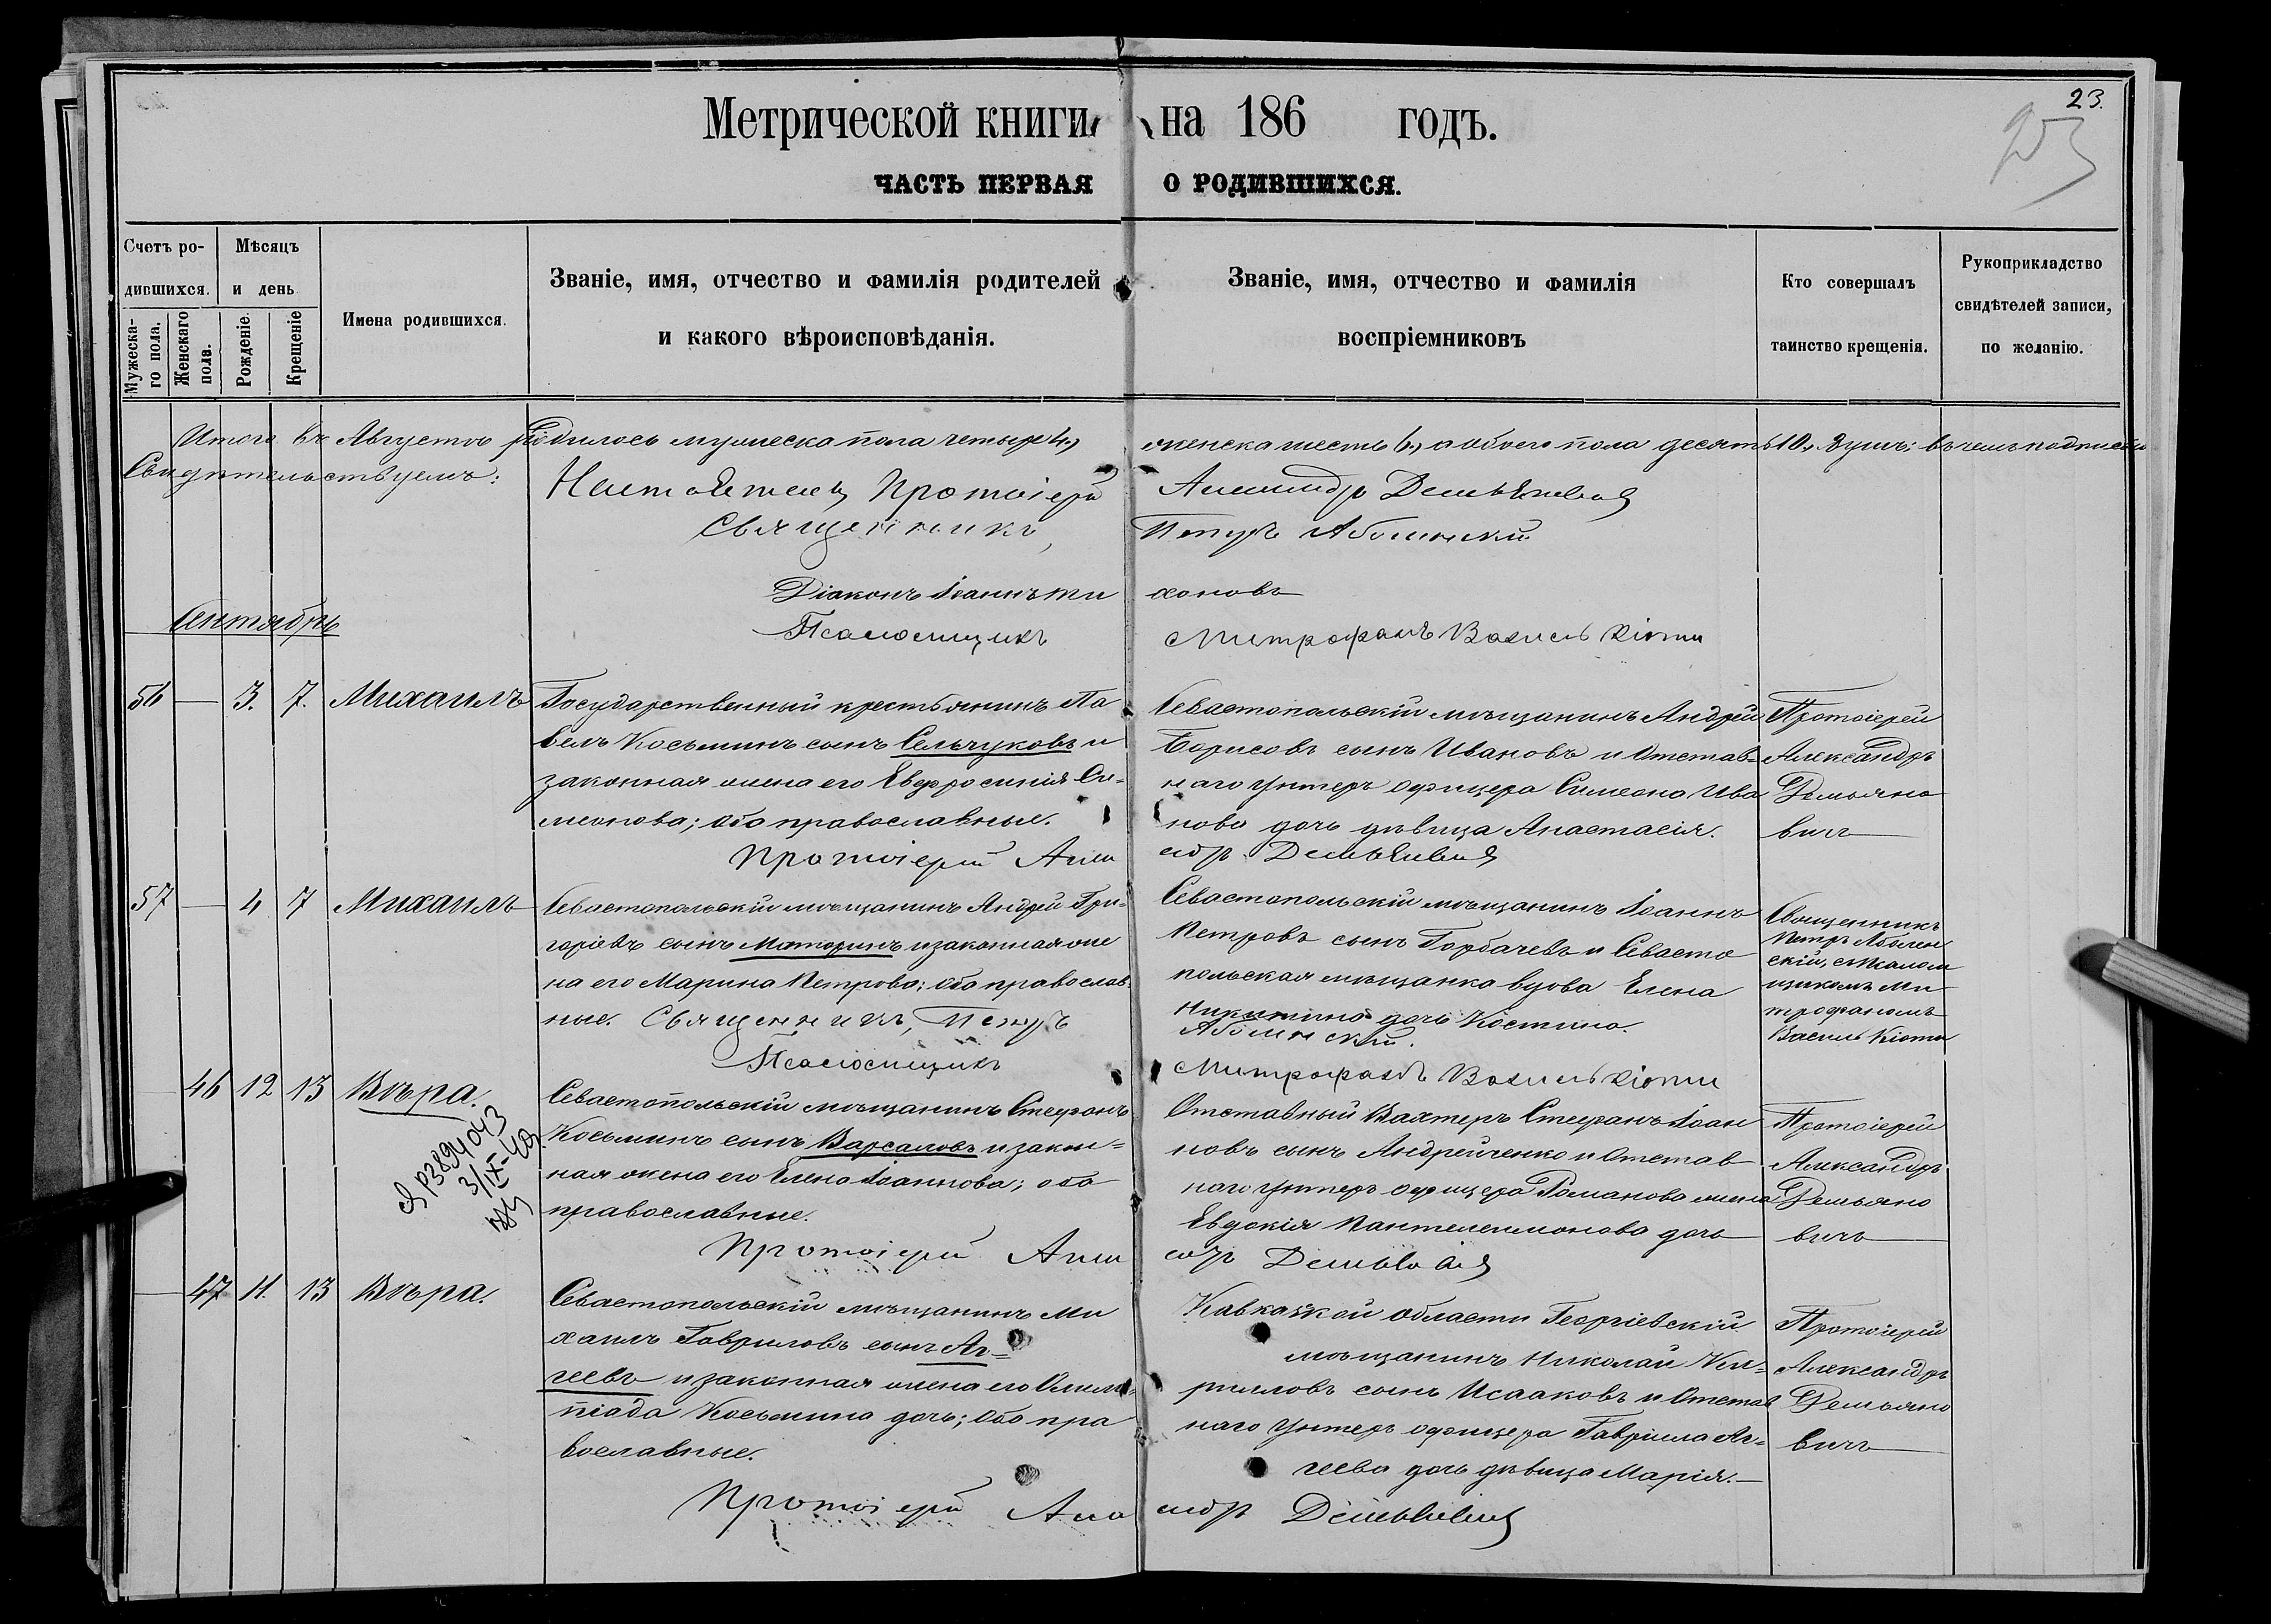 23.
Метрической книги на 186 годъ.
ЧАСТЬ ПЕРВАЯ О РОДИВШИХСЯ.
Счетъ родившихся.
Мужескаго пола.
Женскаго пола.
Мѣсяцъ и день
Рожденіе.
Крещеніе
Имена родившихся.
Званіе, имя, отчество и фамилія родителей
и какого вѣроисповѣданія.
Званіе, имя, отчество и фамилія
воспріемниковъ
Кто совершалъ
таинство крещенія.
Рукоприкладство
свидѣтелей записи,
по желанію.
Итого въ Августѣ родилось мужеска пола четыре 4, женска шесть 6, а обоего пола десять 10, душъ; въ чемъ подписомъ
Свидѣтельствуемъ:
Настоятель Протоіерей Александръ Демьяновичъ
Священникъ, Петръ Аболенскій
Діаконъ Іоаннъ Тихоновъ
Псаломщикъ Митрофанъ Василькіоти
Сентябрь
56 — 3. 7. Михаилъ
Государственный крестьянинъ Па
велъ Косьминъ сынъ Сельчуковъ и
законная жена его Евфросинія Си=
меонова; оба православные.
Севастопольскій мѣщанинъ Андрей
Борисовъ сынъ Ивановъ и Отстав=
наго унтеръ офицера Симеона Ива
нова дочь дѣвица Анастасія.
Протоіерей
Александръ
Демьяно
вичъ
Протоіерей Александръ Демьяновичъ
57 — 4 7 Михаилъ
Севастопольскій мѣщанинъ Андрей Гри=
горіевъ сынъ Маторинъ и законная же
на его Марина Петрова; оба православ
ные. Священникъ, Петръ
Аболенскій.
Севастопольскій мѣщанинъ Іоаннъ
Петровъ сынъ Горбачевъ и Севасто
польская мѣщанка вдова Елена
Никитина дочь Костина.
Священникъ
Петръ Аболен
скій, съ Псалом
щикомъ Ми
трофаномъ
Василькіоти
Псаломщикъ Митрофанъ Василькіоти
46 12 13 Вѣра.
Я Р3894043
3/IX-40г.
Севастопольскій мѣщанинъ Стефанъ
Косьминъ сынъ Варсаловъ и закон=
ная жена его Елена Іоаннова; оба
православные.
Отставный Вахтеръ Стефанъ Іоан
новъ сынъ Андрейченко и Отстав
наго унтеръ офицера Романова жена
Евдокія Пантелеимонова дочь
Протоіерей
Александръ
Демьяно
вичъ
Протоіерей Александръ Демьяновичъ
— 47 11. 13 Вѣра.
Севастопольскій мѣщанинъ Ми
хаилъ Гавриловъ сынъ Аг=
геевъ и законная жена его Олим=
піада Косьмина дочь; оба пра
вославные.
Кавказкой области Георгіевскій
мѣщанинъ Николай Ки=
рилловъ сынъ Исааковъ и Отстав
наго Унтеръ офицера Гавріила Аг=
геева дочь дѣвица Марія.
Протоіерей
Александръ
Демьяно
вичъ
Протоіерей Александръ Демьяновичъ